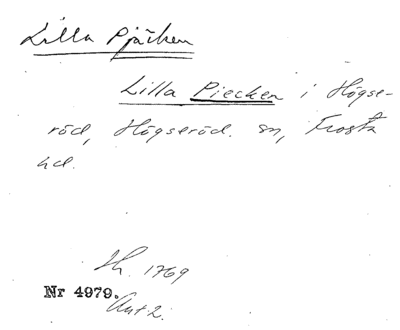 Lilla Pjäcken
Lilla Piecken i Högse-
röd, Högseröd. sn, Frosta
hd.
Jh. 1769
Nr 4979.
Akt 2.